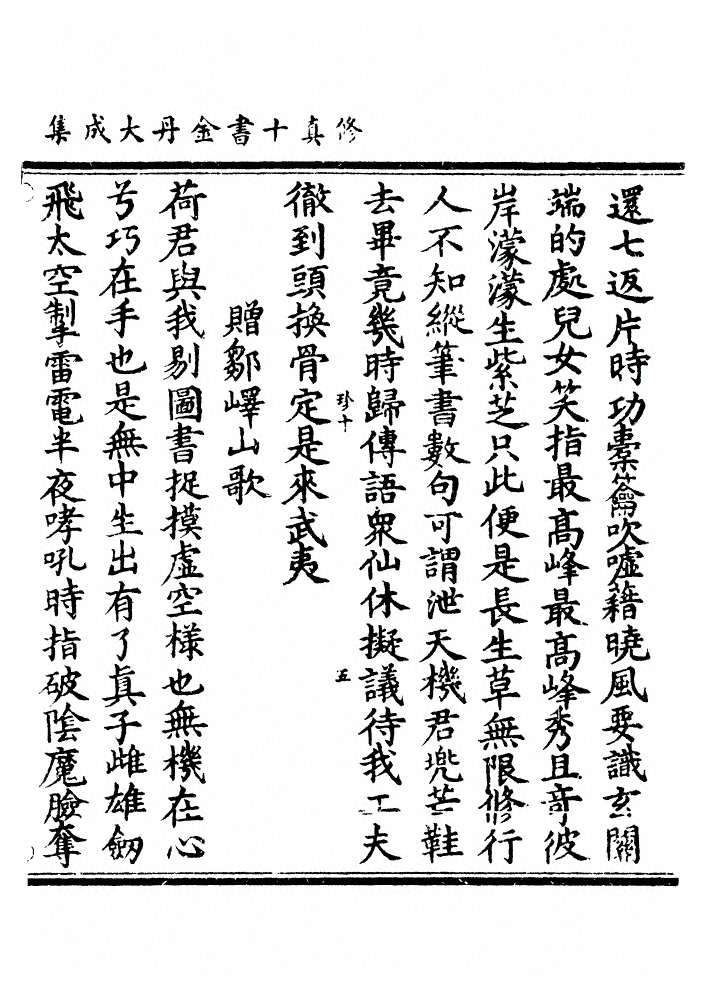 修真十書金丹大成集
還七返片時功橐籥吹噓藉曉風要識玄關
端的處兒女笑指最高峰最高峰秀且奇彼
岸濛濛生紫芝只此便是長生草無限修行
人不知縱筆書數句可謂泄天機君兜芒鞋
去畢竟幾時歸傳語眾仙休擬議待我工夫
珍十
五
徹到頭換骨定是來武夷
贈鄒嶧山歌
荷君與我剔圖書捉摸虛空樣也無機在心
兮巧在手也是無中生出有了真子雌雄劒
飛太空掣雷電半夜哮吼時指破陰魔臉奪